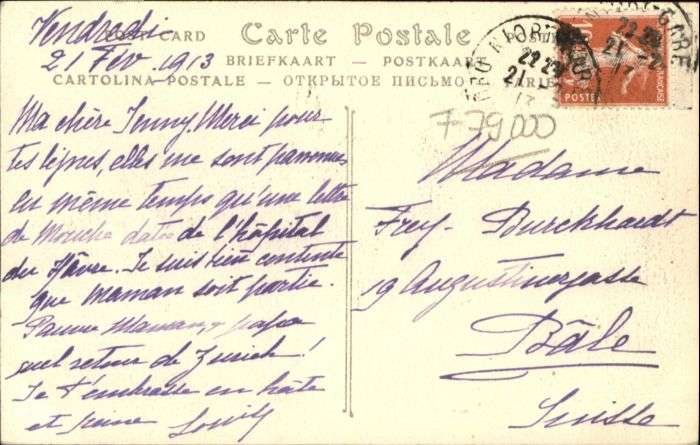 Vendredi
21 Fév. 1913
POST CARD
Carte Postale
BRIEFKAART — POSTKAART
CARTOLINA POSTALE — ОТКРЫТОЕ ПИСЬМО
Ma chère Jenny. Merci pour
tes lignes, elles me sont parvenues
en même temps qu'une lettre
de Mouche datée de l'hôpital
du Hâvre. Je suis bien contente
que Maman soit partie.
Pauvre Maman, papa
quel retour de Zurich!
Je t'embrasse en hâte
et peine
779000
Madame
Frey-Burckhardt
19 Augustinergasse
Bâle
Suisse
POSTES
GARE